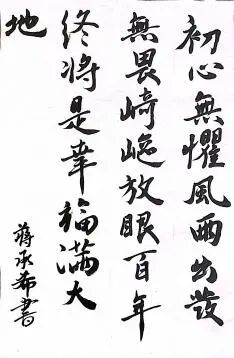 初心無懼風雨出發
無畏崎嶇放眼百年
終將是幸福滿大
地
蔣承希書